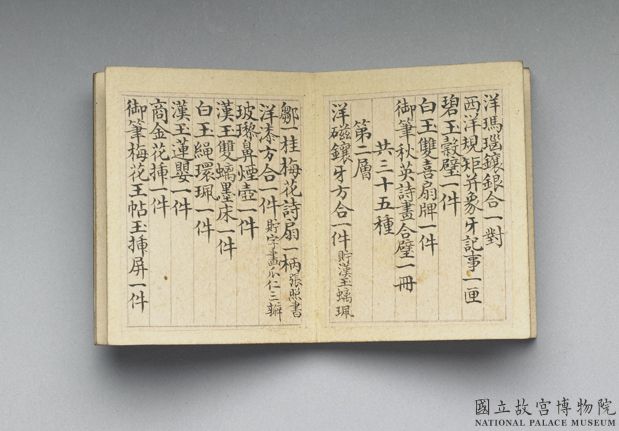 洋瑪瑙鑲銀合一對
西洋規矩并象牙記事一匣
碧玉穀璧一件
白玉雙喜扇牌一件
御筆秋英詩畫合璧一冊
共三十五種
第二層
洋磁鑲牙方合一件 貯漢玉螭珮
鄒一桂梅花詩扇一柄 張照書
洋漆方合一件 貯字畫瓜仁三瓣
玻瓈鼻煙壺一件
漢玉雙螭墨床一件
白玉繩環珮一件
漢玉蓮嬰一件
商金花揷一件
御筆梅花王帖玉揷屏一件
國立故宮博物院
NATIONAL PALACE MUSEUM